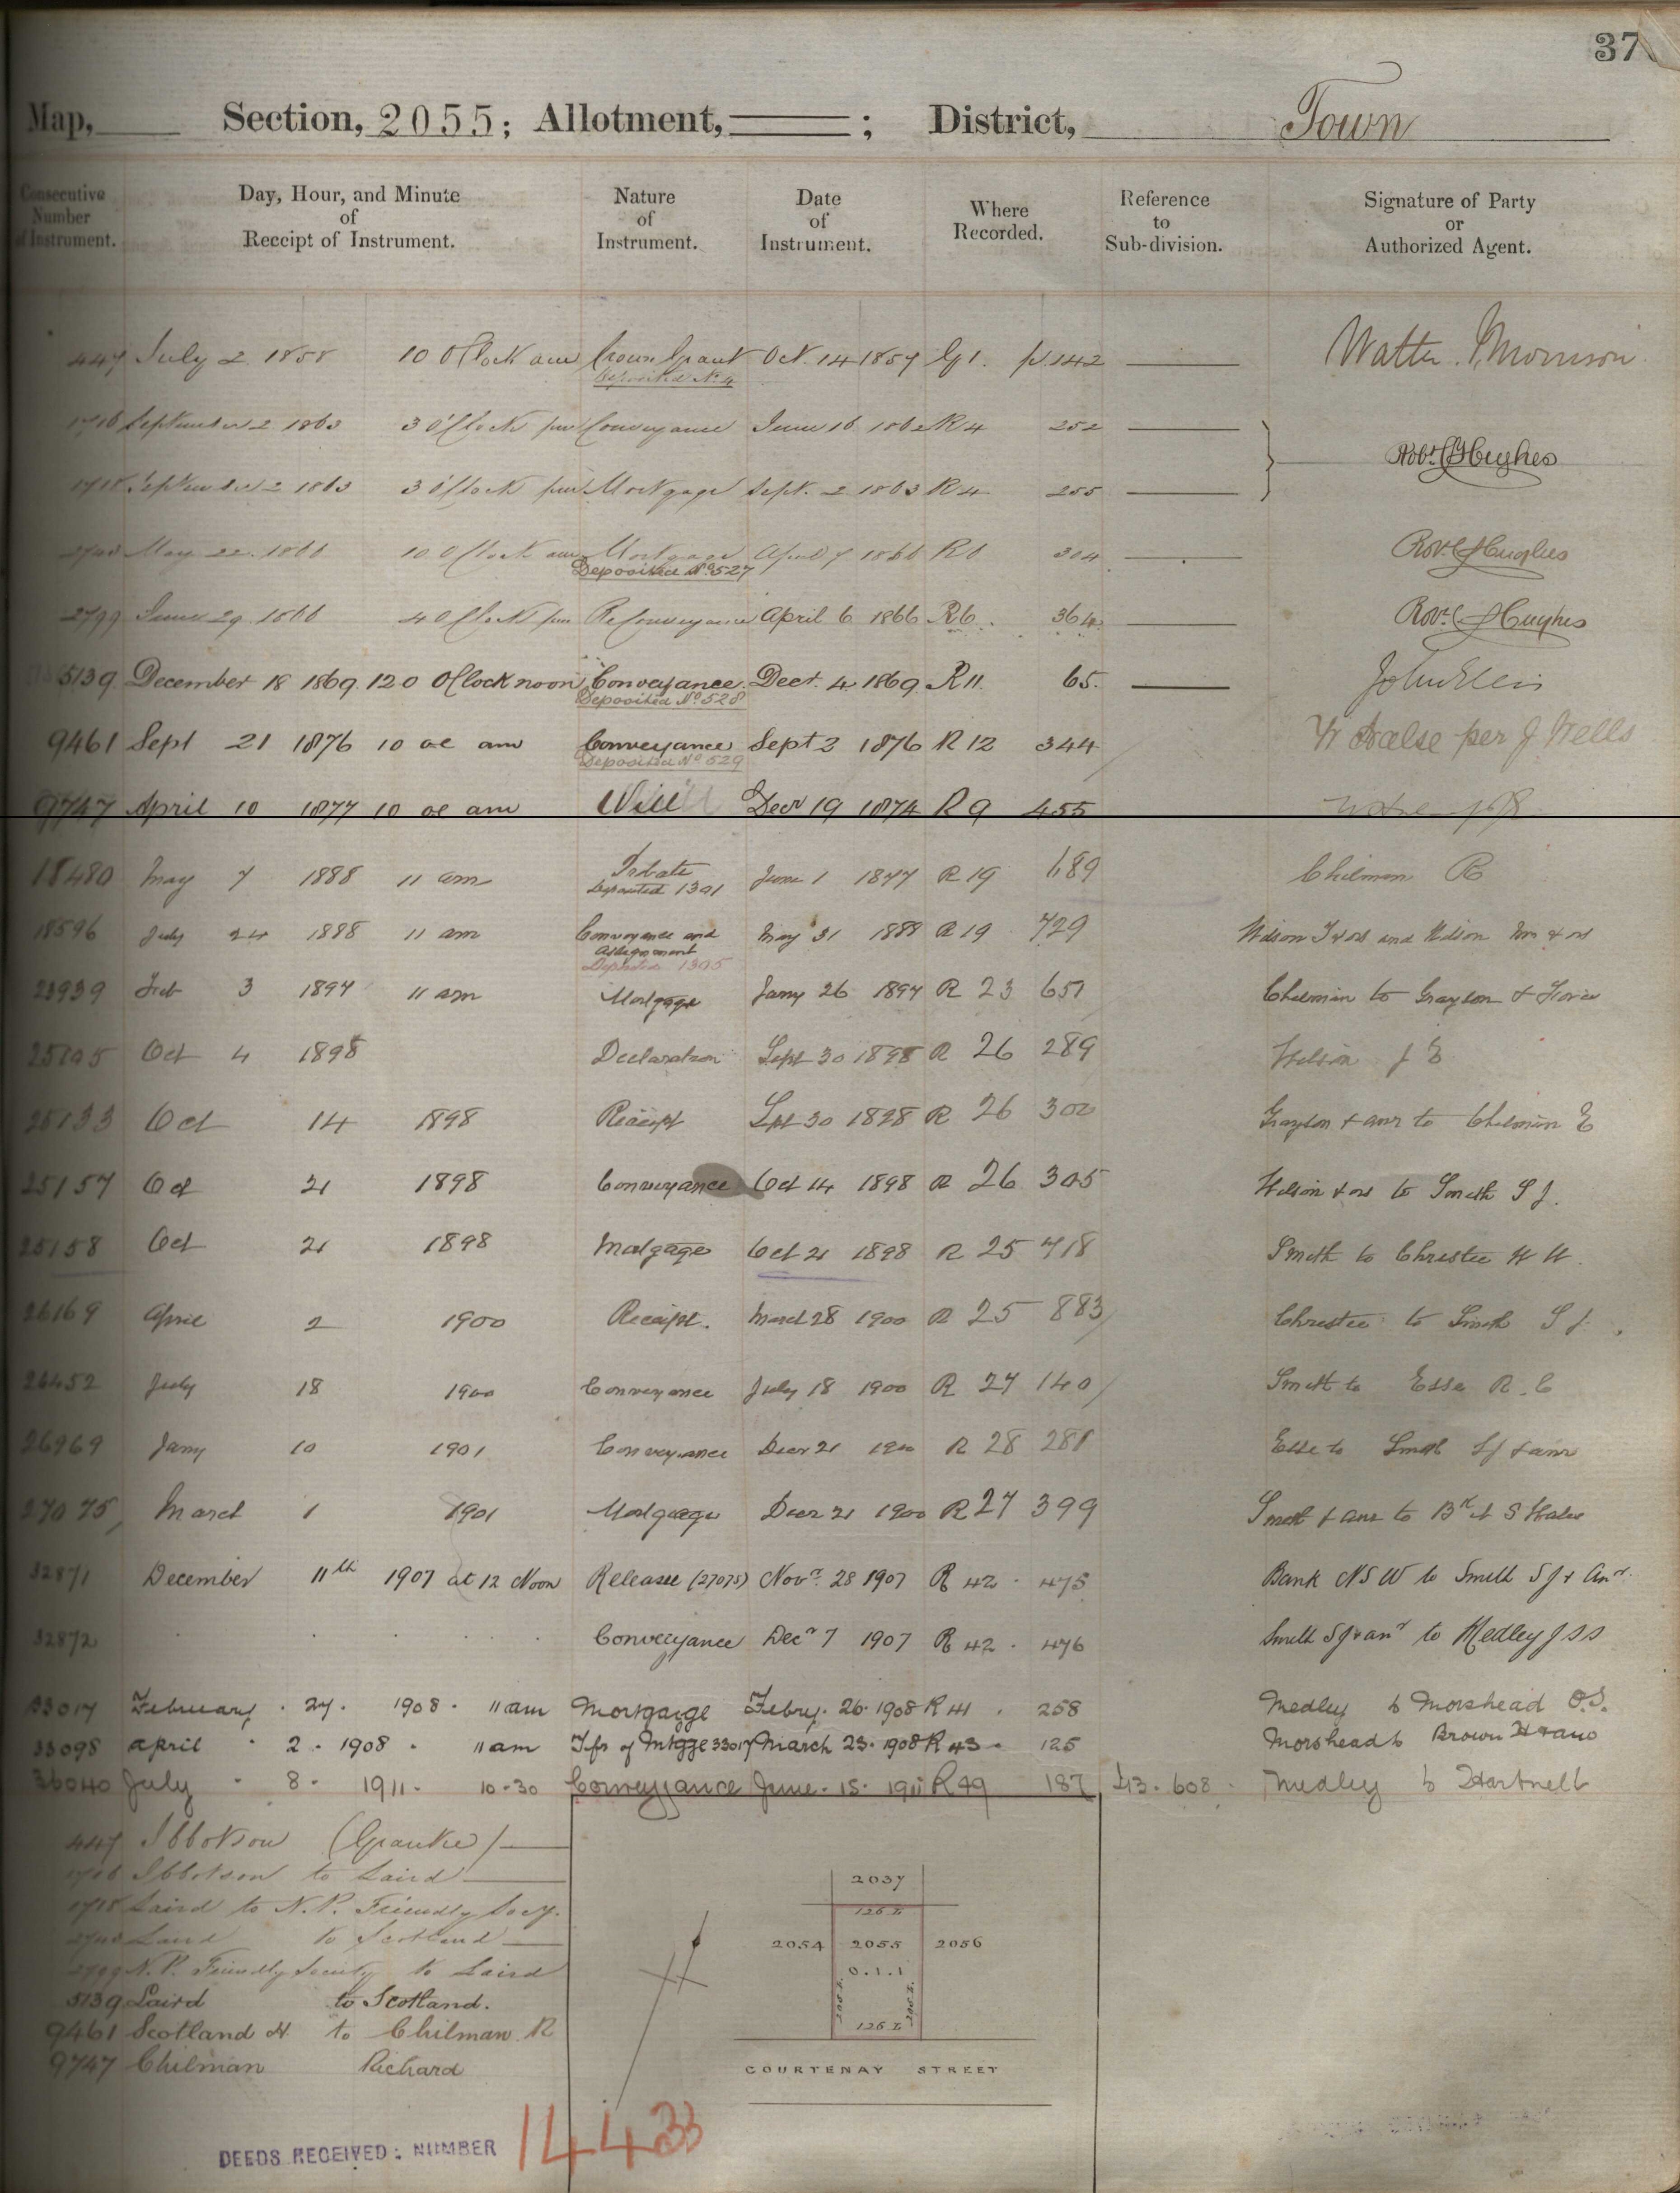 37
Map, Section, 2055; Allotment, ; District, Town
Consecutive Number of Instrument.
Day, Hour, and Minute of Receipt of Instrument.
Nature of Instrument.
Date of Instrument.
Where Recorded.
Reference to Sub-division.
Signature of Party or Authorized Agent.
447 July 2 1858 10 O'Clock am Crown Grant Oct. 14 1857 G1. p. 142 Walter Morrison
Deposited No 4
1716 September 2 1863 3 O'Clock pm Conveyance June 16 1862 R4 252
Robt Hughes
1718 September 2 1863 3 O'Clock pm Mortgage Sept. 2 1863 R4 255
May 22 1866 10 O'Clock am Mortgage April 7 1866 R6 304 Robt Hughes
Deposited No 527
2799 June 29 1866 4 O'Clock pm Reconveyance April 6 1866 R6. 364 Robt Hughes
5139 December 18 1869. 12 O Clock noon Conveyance Decr. 4 1869 R11. 65.
Deposited No 528
9461 Sept 21 1876 10 oc am Conveyance Sept 2 1876 R 12 344 W Halse per J Wells
Deposited No 529
9747 April 10 1877 10 oc am Will Decr 19 1874 R 9 455
18480 May 7 1888 11 am Probate June 1 1877 R 19 689 Chilman R
Deposited 1301
18596 July 24 1888 11 am Conveyance and May 31 1888 R 19 729 Wilson and Wilson
Assignment
Deposited 1305
23939 Feb 3 1897 11 am Mortgage Jany 26 1897 R 23 657 Chilman to Grayson &
25105 Oct 4 1898 Declaration Sept 30 1898 R 26 289 Wilson J E
25133 Oct 14 1898 Receipt Sept 30 1898 R 26 300 Grayson & anr to Chilman E
25157 Oct 21 1898 Conveyance Oct 14 1898 R 26 305 Wilson & ors to Smith S J.
25158 Oct 21 1898 Mortgage Oct 21 1898 R 25 718 Smith to Christie W W.
26169 April 2 1900 Receipt. March 28 1900 R 25 883 Christie to Smith S J.
26452 July 18 1900 Conveyance July 18 1900 R 27 140 Smith to Esse R. C
26969 Jany 10 1901 Conveyance Decr 21 1900 R 28 281 Esse to Smith S J & anr
27075, March 1 1901 Mortgage Decr 21 1900 R 27 399 Smith & anr to Bk of S Wales
32871 December 11th 1907 at 12 Noon Release (27075) Novr. 28 1907 R 42 . 475 Bank NSW to Smith S J & Anr.
32872 . . . . . Conveyance Decr 7 1907 R 42 . 476 Smith S J & anr to Medley J S S
33017 February . 27. 1908 . 11 am Mortgage Febry. 26. 1908 R 41 . 258 Medley to Morshead O.S.
33098 April . 2 . 1908 . 11 am Tfr of Mtgge 33017 March 23. 1908 R 43 . 125 Morshead to Brown H & ano
36040 July . 8 . 1911. 10.30 Conveyance June. 15. 1911 R 49 187 £13. 608. Medley to Hartnell
447 Ibbotson (Grantee)
1716 Ibbotson to Laird
1718 Laird to N. P. Friendly Socy.
Laird to Scotland
2799 N. P. Friendly Society to Laird
5139 Laird to Scotland.
9461 Scotland H. to Chilman R
9747 Chilman Richard
2037
126 L
2054 2055 2056
0.1.1
205 L. 205 L.
126 L
COURTENAY STREET
DEEDS RECEIVED: NUMBER 14433